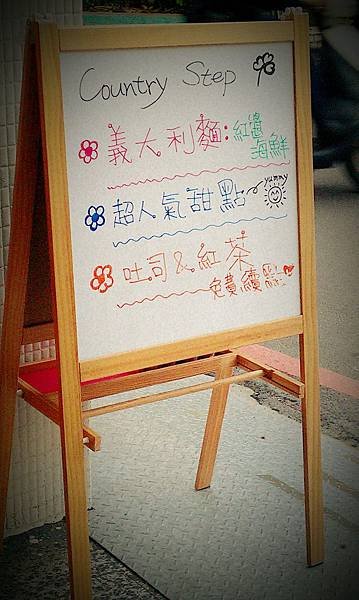 Country Step
義大利麵:紅醬
海鮮
超人氣甜點 yummy
吐司&紅茶
免費續